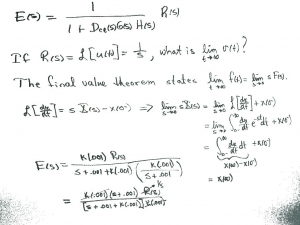 E(s) = 1 / (1 + Dcl(s)G(s) H(s)) R(s)
If R(s) = L[u(t)] = 1/s, what is lim t→∞ v(t)?
The final value theorem states lim t→∞ f(t) = lim s→0 s F(s).
L[dx/dt] = s X(s) - x(0-) => lim s→0 s X(s) = lim s→0 L[dx/dt] + x(0)
= lim s→0 ∫0-∞ dx/dt e^-st dt + x(0)
= ∫0-∞ dx/dt dt + x(0)
x(∞) - x(0)
= x(∞)
E(s) = K(.001) R(s) / (s + .001 + K(.001)) (K(.001) / s + .001)
1/s
= K(.001) (s + .001) R(s) / [s + .001 + K(.001)] K(.001)